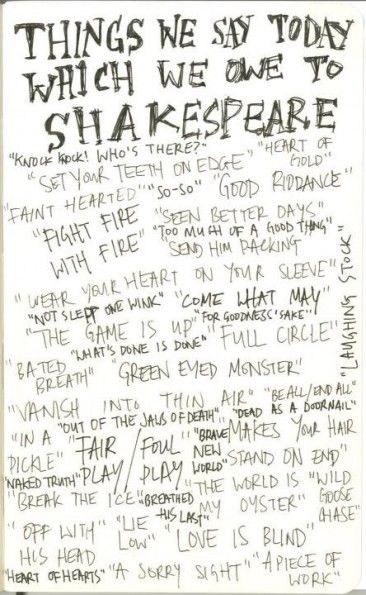 THINGS WE SAY TODAY
WHICH WE OWE TO
SHAKESPEARE
"KNOCK KNOCK! WHO'S THERE?" "HEART OF GOLD"
"SET YOUR TEETH ON EDGE"
"FAINT HEARTED" "SO-SO" "GOOD RIDDANCE"
"FIGHT FIRE WITH FIRE" "SEEN BETTER DAYS"
"TOO MUCH OF A GOOD THING"
"SEND HIM PACKING"
"WEAR YOUR HEART ON YOUR SLEEVE"
"LAUGHING STOCK"
"NOT SLEPP ONE WINK" "COME WHAT MAY"
"THE GAME IS UP" "FOR GOODNESS' SAKE"
"WHAT'S DONE IS DONE" "FULL CIRCLE"
"BATED BREATH" "GREEN EYED MONSTER"
"VANISH INTO THIN AIR" "BE ALL/END ALL"
"OUT OF THE JAWS OF DEATH" "DEAD AS A DOORNAIL"
"IN A PICKLE" "FAIR PLAY/FOUL PLAY" "BRAVE NEW WORLD" "MAKES YOUR HAIR STAND ON END"
"NAKED TRUTH"
"THE WORLD IS MY OYSTER" "WILD GOOSE CHASE"
"BREAK THE ICE" "BREATHED HIS LAST"
"OFF WITH HIS HEAD" "LIE LOW" "LOVE IS BLIND"
"HEART OF HEARTS" "A SORRY SIGHT" "A PIECE OF WORK"